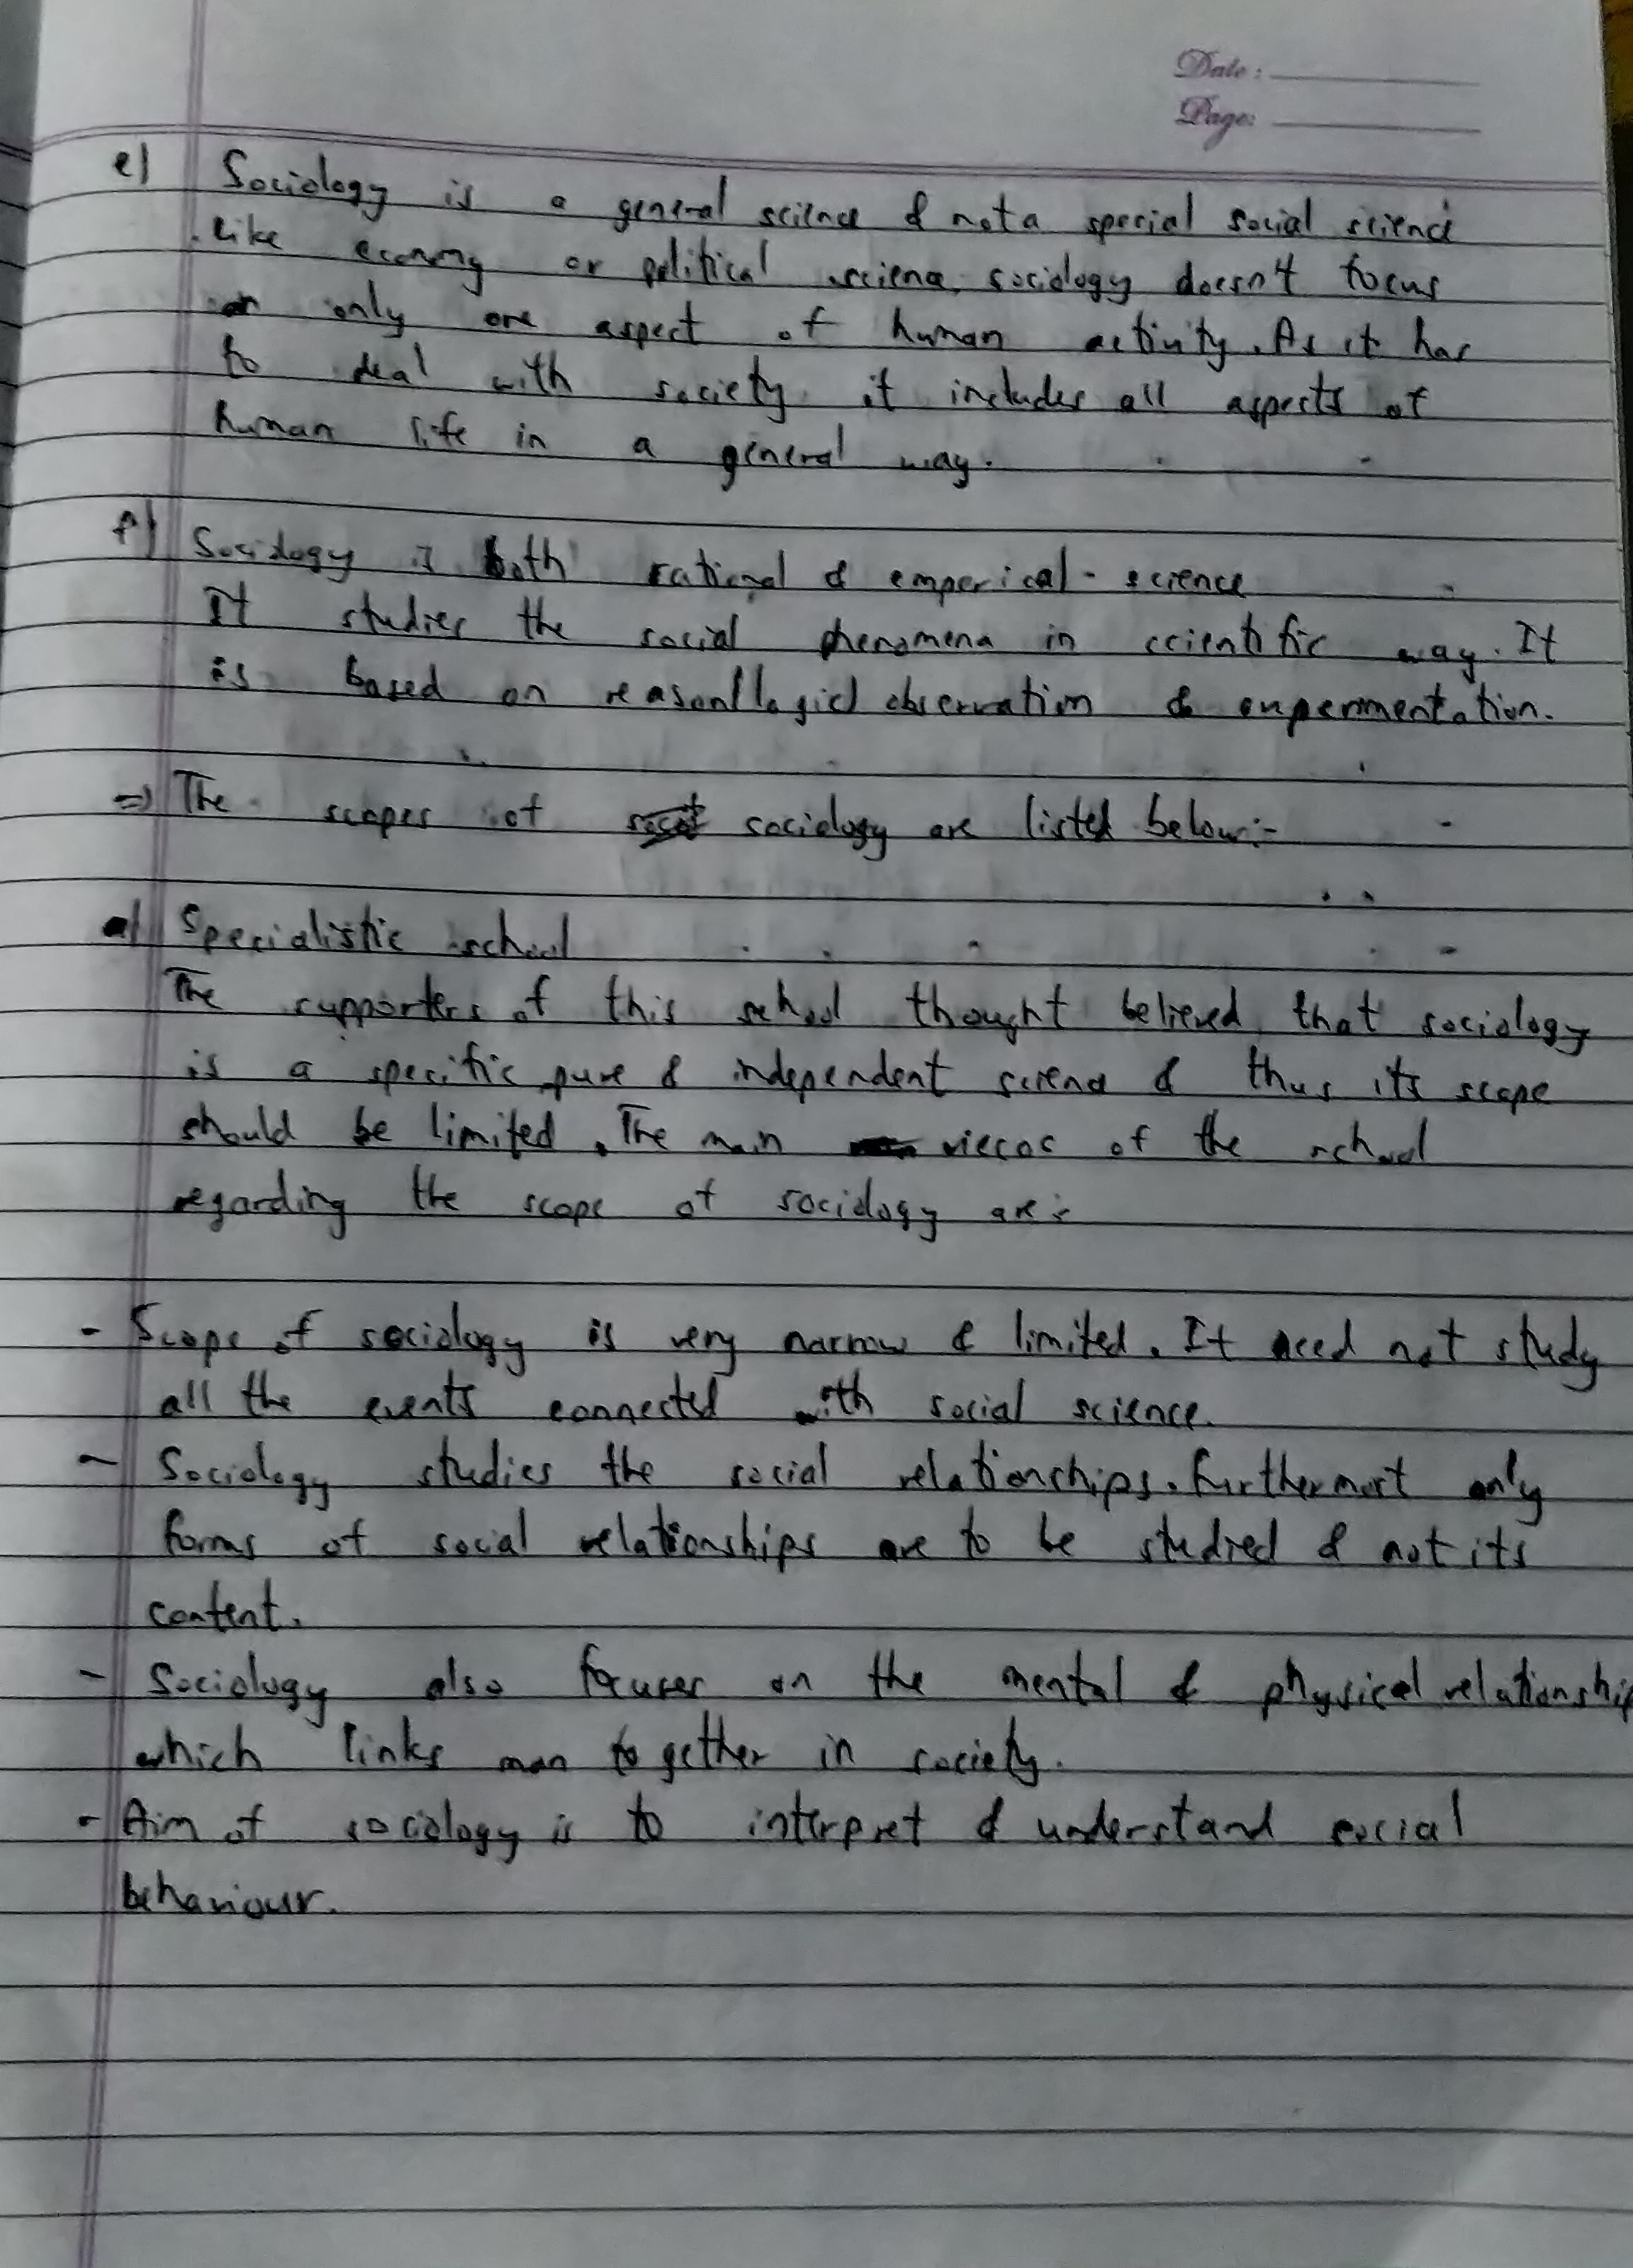 Date :
Page:
e) Sociology is a general science & not a special social science
like economy or political science, sociology doesn't focus
on only one aspect of human activity. As it has
to deal with society it includes all aspects of
human life in a general way.
f) Sociology is both rational & emperical - science
It studies the social phenomena in scientific way. It
is based on reason(logic) observation & experimentation.
=> The scopes of sociology are listed below:-
a) Specialistic school
The supporters of this school thought believed that sociology
is a specific pure & independent science & thus its scope
should be limited. The main of the school
regarding the scope of sociology are:-
- Scope of sociology is very narrow & limited. It need not study
all the events connected with social science.
- Sociology studies the social relationships. Furthermort only
forms of social relationships are to be studied & not its
content.
- Sociology also focuses on the mental & physical relationship
which links man together in society.
- Aim of sociology is to interpret & understand social
behaviour.